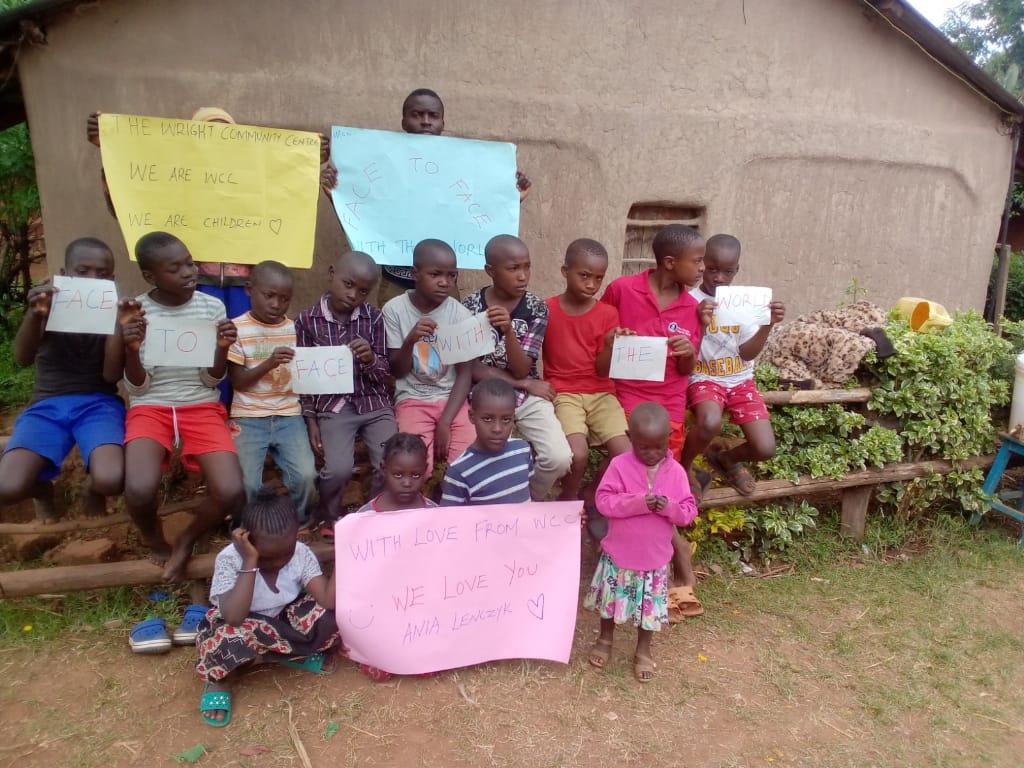 THE WRIGHT COMMUNITY CENTRE
WE ARE WCC
WE ARE CHILDREN ♡
FACE TO FACE
WITH THE WORLD
FACE
TO
FACE
WITH
THE
WORLD
BASEBALL
WITH LOVE FROM WCC
WE LOVE YOU
ANIA LENCZYK